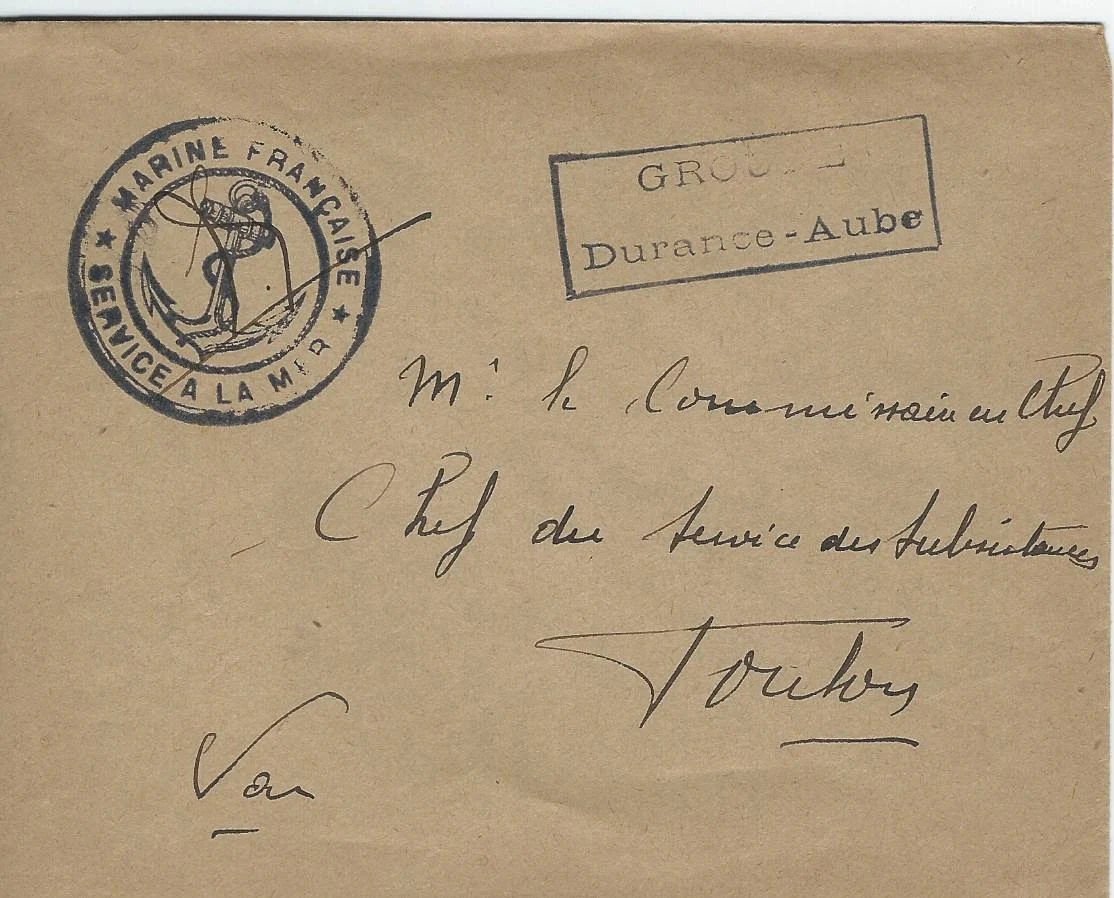 MARINE FRANÇAISE
★ SERVICE A LA MER ★
GROUPE
Durance-Aube
Mr le Commissaire en Chef
Chef du Service des Subsistances
Toulon
Var